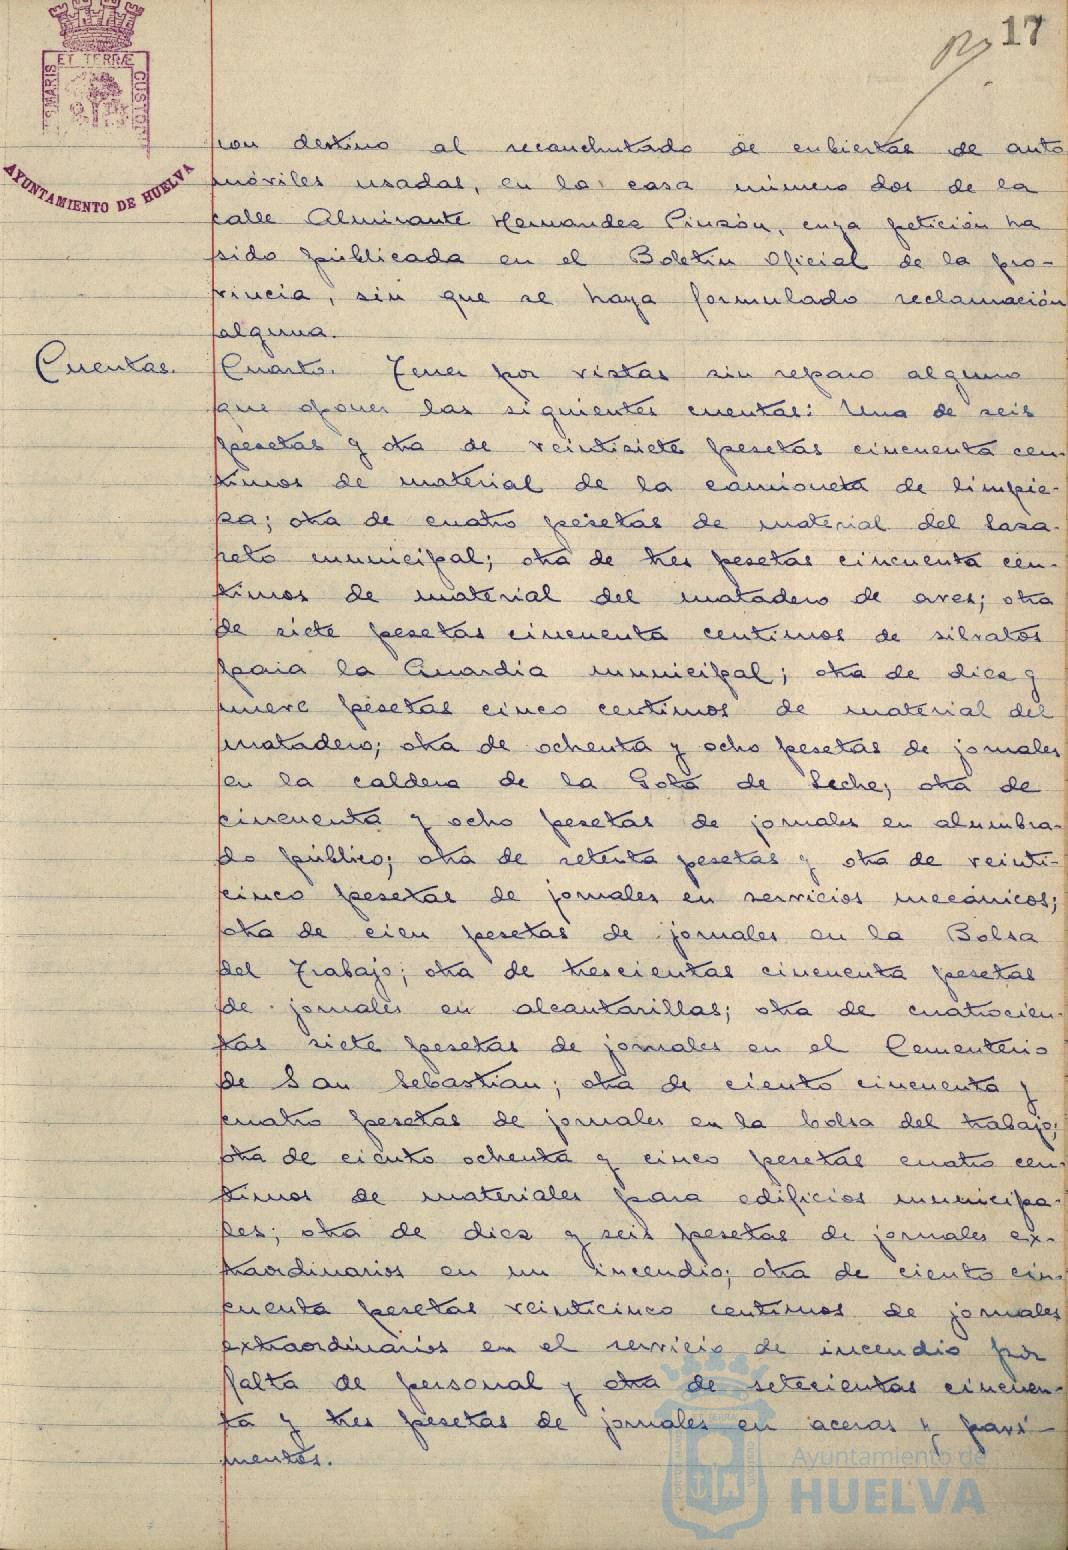 17
ET TERRÆ
MARIS
CUSTOD
AYUNTAMIENTO DE HUELVA
con destino al recauchutado de cubiertas de auto
móviles usadas, en la casa número dos de la
calle Almirante Hernandez Pinzón, cuya petición ha
sido publicada en el Boletín Oficial de la pro-
vincia, sin que se haya formulado reclamación
alguna.
Cuentas.
Cuarto. Tener por vistas sin reparo alguno
que oponer las siguientes cuentas: Una de seis
pesetas y otra de veintisiete pesetas cincuenta cen-
timos de material de la camioneta de limpie-
za; otra de cuatro pesetas de material del Laza-
reto municipal; otra de tres pesetas cincuenta cen-
timos de material del matadero de aves; otra
de siete pesetas cincuenta centimos de silvatos
para la Guardia municipal; otra de diez y
nueve pesetas cinco centimos de material del
matadero; otra de ochenta y ocho pesetas de jornales
en la caldera de la Gota de Leche; otra de
cincuenta y ocho pesetas de jornales en alumbra-
do público; otra de setenta pesetas y otra de veinti-
cinco pesetas de jornales en servicios mecánicos;
otra de cien pesetas de jornales en la Bolsa
del Trabajo; otra de trescientas cincuenta pesetas
de jornales en alcantarillas; otra de cuatrocien-
tas siete pesetas de jornales en el Cementerio
de San Sebastian; otra de ciento cincuenta y
cuatro pesetas de jornales en la bolsa del trabajo;
otra de ciento ochenta y cinco pesetas cuatro cen-
timos de materiales para edificios municipa-
les; otra de diez y seis pesetas de jornales ex-
traordinarios en un incendio; otra de ciento cin-
cuenta pesetas veinticinco centimos de jornales
extraordinarios en el servicio de incendio por
falta de personal y otra de setecientas cincuen-
ta y tres pesetas de jornales en aceras y pavi-
mentos.
Ayuntamiento de
HUELVA